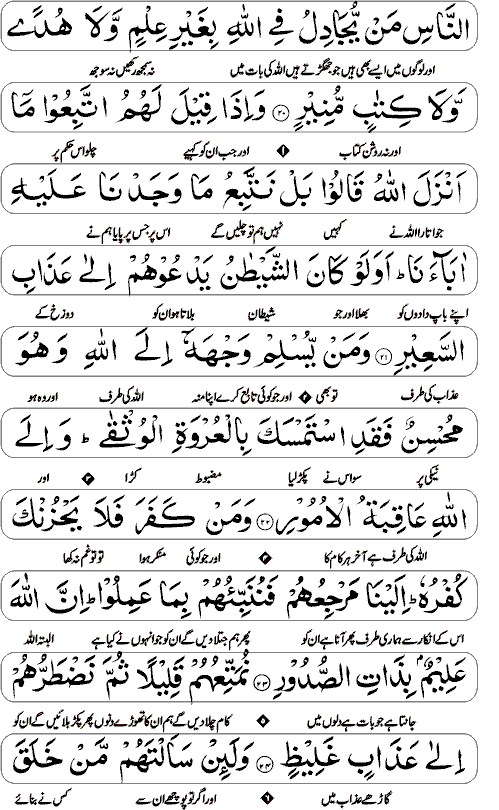 النَّاسِ مَنْ يُّجَادِلُ فِى اللّٰهِ بِغَيْرِ عِلْمٍ وَّلَا هُدًى
اور لوگوں میں ایسے بھی ہیں جو جھگڑتے ہیں اللہ کی بات میں نہ سمجھ رکھیں نہ سوجھ
وَّلَا كِتٰبٍ مُّنِيْرٍ ۝۲۰ وَاِذَا قِيْلَ لَهُمُ اتَّبِعُوْا مَآ
اور نہ روشن کتاب ۱ اور جب ان کو کہیے چلو اس حکم پر
اَنْزَلَ اللّٰهُ قَالُوْا بَلْ نَتَّبِعُ مَا وَجَدْنَا عَلَيْهِ
جو اتارا اللہ نے کہیں نہیں ہم تو چلیں گے اس پر جس پر پایا ہم نے
اٰبَآءَنَا ؕ اَوَلَوْ كَانَ الشَّيْطٰنُ يَدْعُوْهُمْ اِلٰى عَذَابِ
اپنے باپ دادوں کو بھلا اور جو شیطان بلاتا ہو ان کو دوزخ کے
السَّعِيْرِ ۝۲۱ وَمَنْ يُّسْلِمْ وَجْهَهٗٓ اِلَى اللّٰهِ وَهُوَ
عذاب کی طرف تو بھی ۲ اور جو کوئی تابع کرے اپنا منہ اللہ کی طرف اور وہ ہو
مُحْسِنٌ فَقَدِ اسْتَمْسَكَ بِالْعُرْوَةِ الْوُثْقٰى ؕ وَاِلَى
نیکی پر سو اس نے پکڑ لیا مضبوط کڑا ۳ اور
اللّٰهِ عَاقِبَةُ الْاُمُوْرِ ۝۲۲ وَمَنْ كَفَرَ فَلَا يَحْزُنْكَ
اللہ کی طرف ہے آخر ہر کام کا ۴ اور جو کوئی منکر ہوا تو تو غم نہ کھا
كُفْرُهٗ ؕ اِلَيْنَا مَرْجِعُهُمْ فَنُنَبِّئُهُمْ بِمَا عَمِلُوْا ؕ اِنَّ اللّٰهَ
اس کے انکار سے ہماری طرف پھر آنا ہے ان کو پھر ہم جتلا دیں گے ان کو جو انہوں نے کیا ہے البتہ اللہ
عَلِيْمٌۢ بِذَاتِ الصُّدُوْرِ ۝۲۳ نُمَتِّعُهُمْ قَلِيْلًا ثُمَّ نَضْطَرُّهُمْ
جانتا ہے جو بات ہے دلوں میں ۵ کام چلا دیں گے ہم ان کا تھوڑے دنوں پھر پکڑ بلائیں گے ان کو
اِلٰى عَذَابٍ غَلِيْظٍ ۝۲۴ وَلَئِنْ سَاَلْتَهُمْ مَّنْ خَلَقَ
گاڑھے عذاب میں ۶ اور اگر تو پوچھے ان سے کس نے بنائے